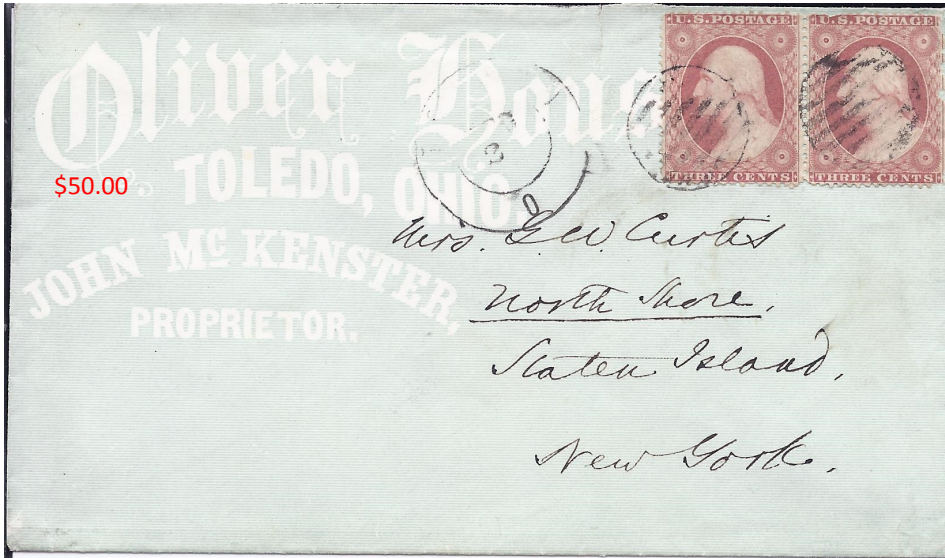 Oliver House
TOLEDO, OHIO.
JOHN McKENSTER,
PROPRIETOR.
$50.00
U.S. POSTAGE
THREE CENTS
U.S. POSTAGE
THREE CENTS
O
Mrs. G. W. Curtis
North Shore.
Staten Island,
New York.